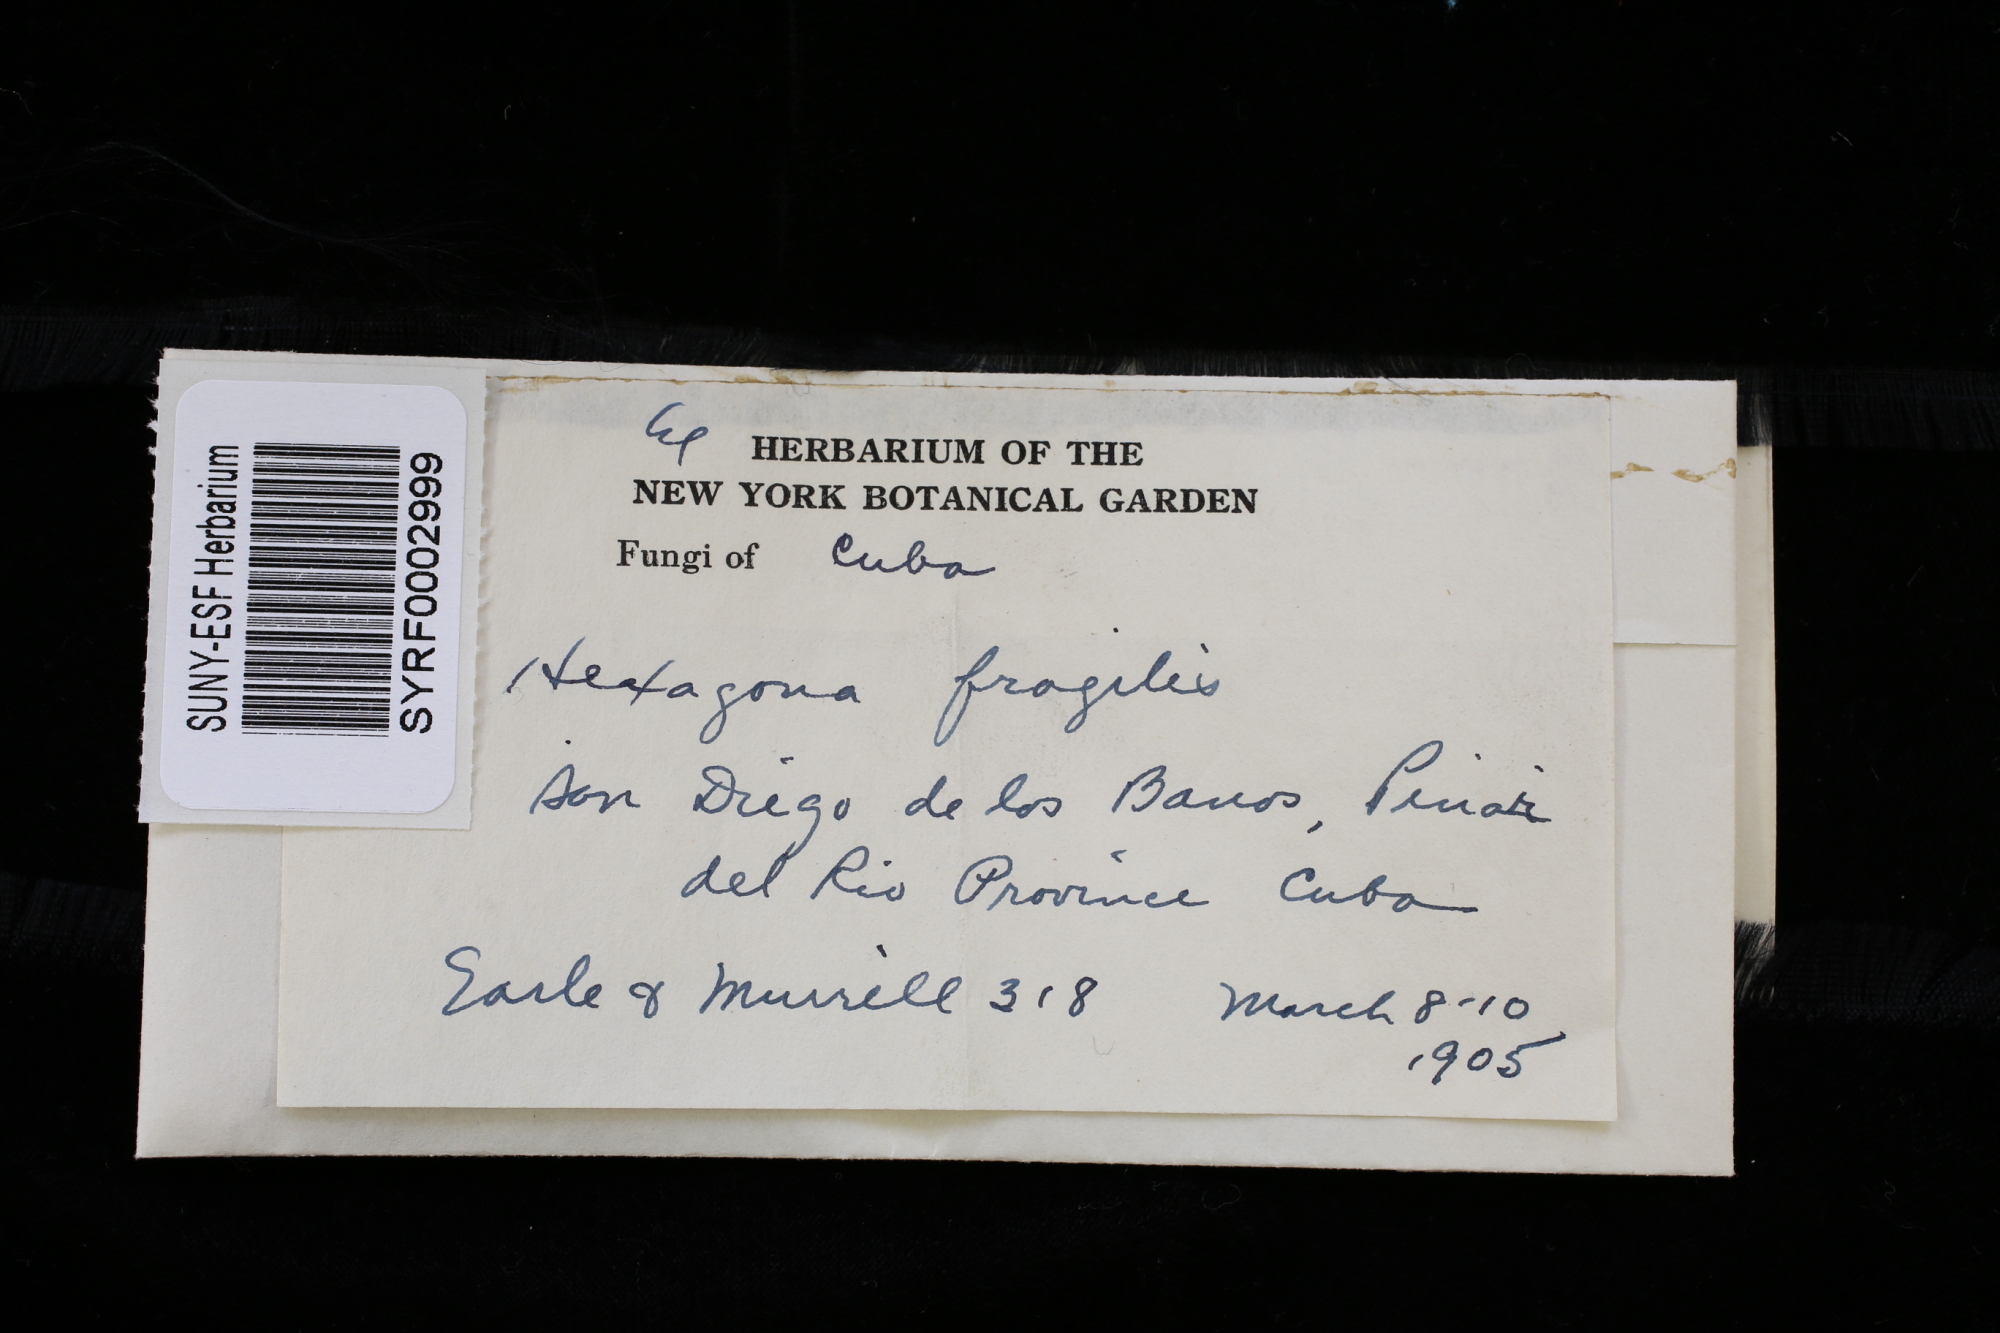 SUNY-ESF Herbarium
SYRF0002999
HERBARIUM OF THE
NEW YORK BOTANICAL GARDEN
Fungi of Cuba
Hexagona fragilis
San Diego de los Banos, Pinar
del Rio Province Cuba
Earle & Murrill 318 March 8-10
1905